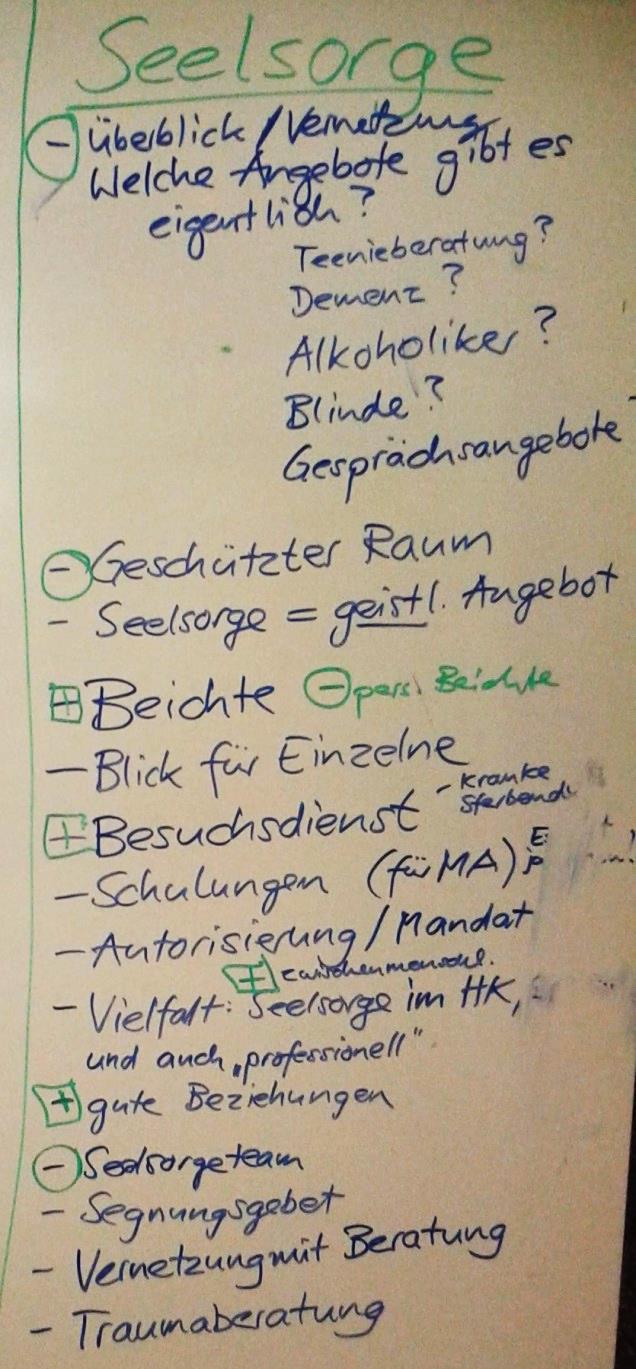 Seelsorge
- Überblick / Vernetzung
Welche Angebote gibt es
eigentlich?
Teenieberatung?
Demenz?
Alkoholiker?
Blinde?
Gesprächsangebote
- Geschützter Raum
- Seelsorge = geistl. Angebot
+ Beichte - pers. Beichte
- Blick für Einzelne
- Kranke
Sterbende
+ Besuchsdienst
- Schulungen (für MA) E
P
- Autorisierung / Mandat
+ zwischenmenschl.
- Vielfalt: Seelsorge im HK,
und auch „professionell"
+ gute Beziehungen
- Seelsorgeteam
- Segnungsgebet
- Vernetzung mit Beratung
- Traumaberatung